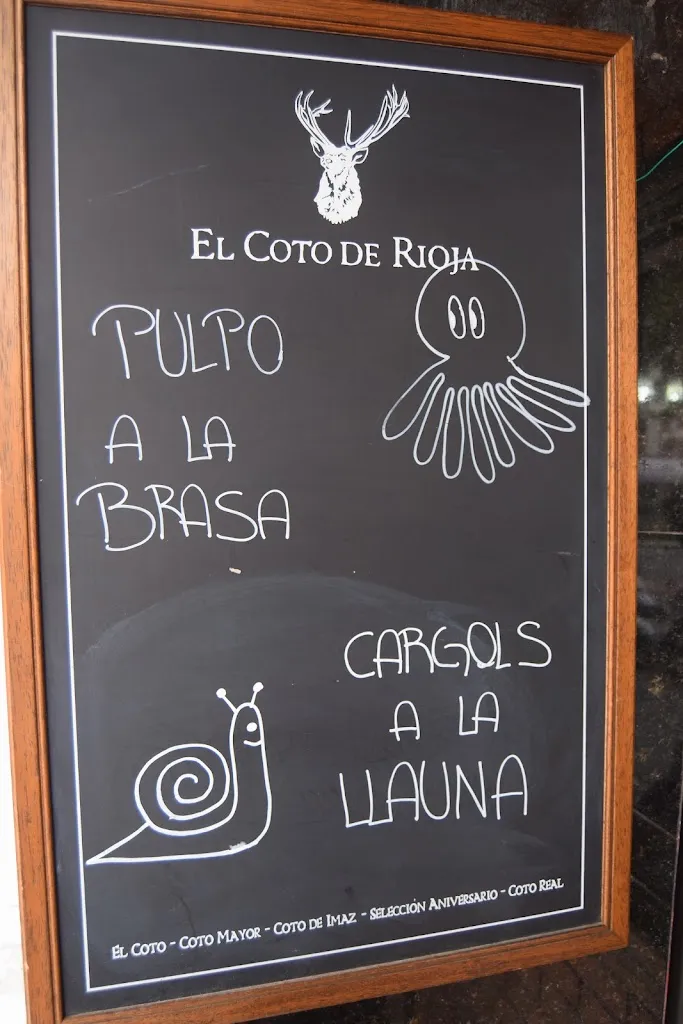 EL COTO DE RIOJA
PULPO
A LA
BRASA
CARGOLS
A LA
LLAUNA
EL COTO - COTO MAYOR - COTO DE IMAZ - SELECCIÓN ANIVERSARIO - COTO REAL